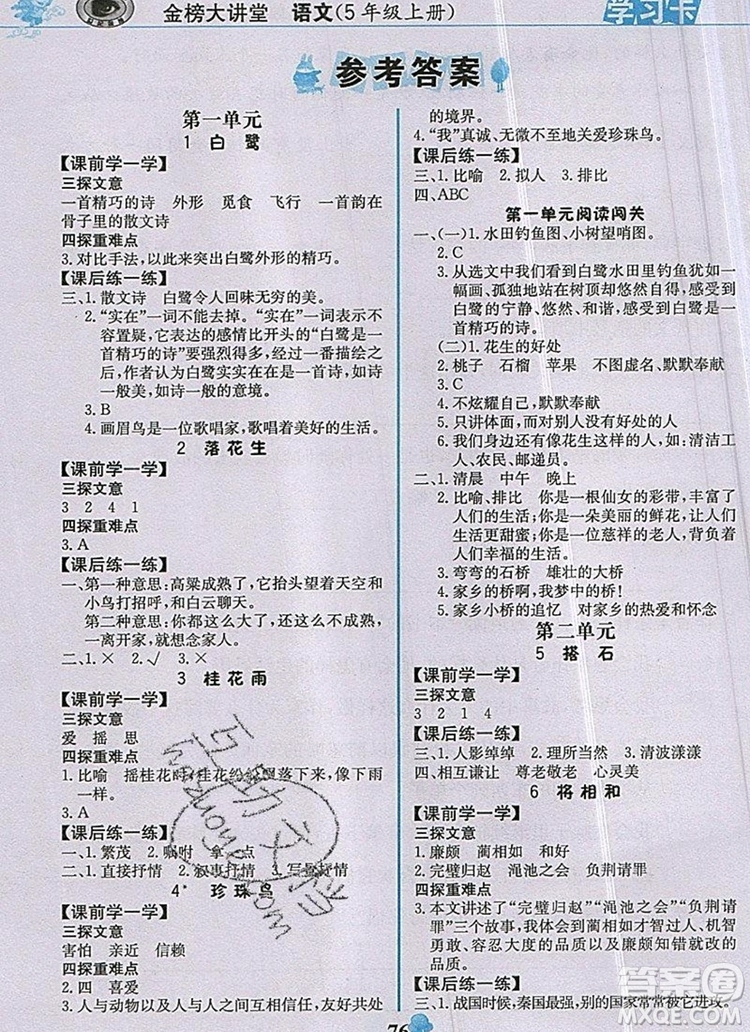 金榜大讲堂 语文(5年级上册)
学习卡
参考答案
第一单元
1 白鹭
【课前学一学】
三探文意
一首精巧的诗 外形 觅食 飞行 一首韵在
骨子里的散文诗
四探重难点
3.对比手法,以此来突出白鹭外形的精巧。
【课后练一练】
三、1.散文诗 白鹭令人回味无穷的美。
2.“实在”一词不能去掉。“实在”一词表示不
容置疑,它表达的感情比开头的“白鹭是一
首精巧的诗”要强烈得多。经过一番描绘之
后,作者认为白鹭实在是一首诗,达到如诗
一般美,如诗一般的意境。
3.B
4.画眉鸟是一位歌唱家,歌唱着美好的生活。
2 落花生
【课前学一学】
三探文意
3 2 4 1
四探重难点
3.A
【课后练一练】
一、第一种意思:高粱成熟了,它抬起头与天空和
小鸟打招呼,和白云聊天。
第二种意思:你都这么大了,还这么依恋我,
一离开家,就想念家人。
二、1.× 2.√ 3.×
3 桂花雨
【课前学一学】
三探文意
爱 摇 思
四探重难点
1.比喻 摇桂花时,桂花纷纷飘落下来,像下雨
一样。
3.A
【课后练一练】
一、1.繁茂 2.嘱咐 拿一点
二、1.直接抒情 2.叙事抒情 3.写景抒情
4* 珍珠鸟
【课前学一学】
三探文意
害怕 亲近 信赖
四探重难点
2.四 喜爱
3.人与动物以及人与人之间相互信任,友好共处
的境界。
4.“我”真诚、无微不至地关爱珍珠鸟。
【课后练一练】
三、1.比喻 2.拟人 3.排比
四、ABC
第一单元阅读闯关
一、(一)1.水田钓鱼图、小树望哨图。
2.C
3.从选文中我们看到白鹭水田里钓鱼犹如
一幅画,孤独地站在树顶却又悠然,表现
白鹭的宁静、悠然、和谐,我觉得白鹭是
一首精巧的诗。
(二)1.花生的好处
2.桃子 石榴 苹果 不图虚名、默默奉献
3.C
4.不炫耀自己,默默奉献
5.只讲体面,而对别人没有好处
6.我们身边还有像花生这样的人,如:清洁工
人、农民、邮递员。
二、1.清晨 中午 晚上
2.比喻、排比 你是一根仙女的彩带,丰富了
人们的生活;你是一朵美丽的鲜花,让人们
的生活更加甜美;你是一位慈祥的老人,让
人们幸福的生活。
3.弯弯的石桥 雄壮的大桥
4.家乡的桥啊,我梦中的桥!
5.家乡小桥的追忆 对家乡的热爱和怀念
第二单元
5 搭石
【课前学一学】
三探文意
3 2 1 4
【课后练一练】
三、1.人影绰绰 2.理所当然 3.清波漾漾
四、相互谦让 尊老敬老 心灵美
6 将相和
【课前学一学】
三探文意
1.廉颇 蔺相如 和好
2.完璧归赵 渑池之会 负荆请罪
四探重难点
3.本文讲述了“完璧归赵”“渑池之会”“负荆请
罪”三个故事,我体会到蔺相如才智过人、机智
勇敢、以国家为重的品质以及廉颇知错就改的
精神。
【课后练一练】
三、1.战国时候,秦国最强,别的国家常常被它欺
76
互助文档
hazuoye.com
答案圈
MXQE.COM